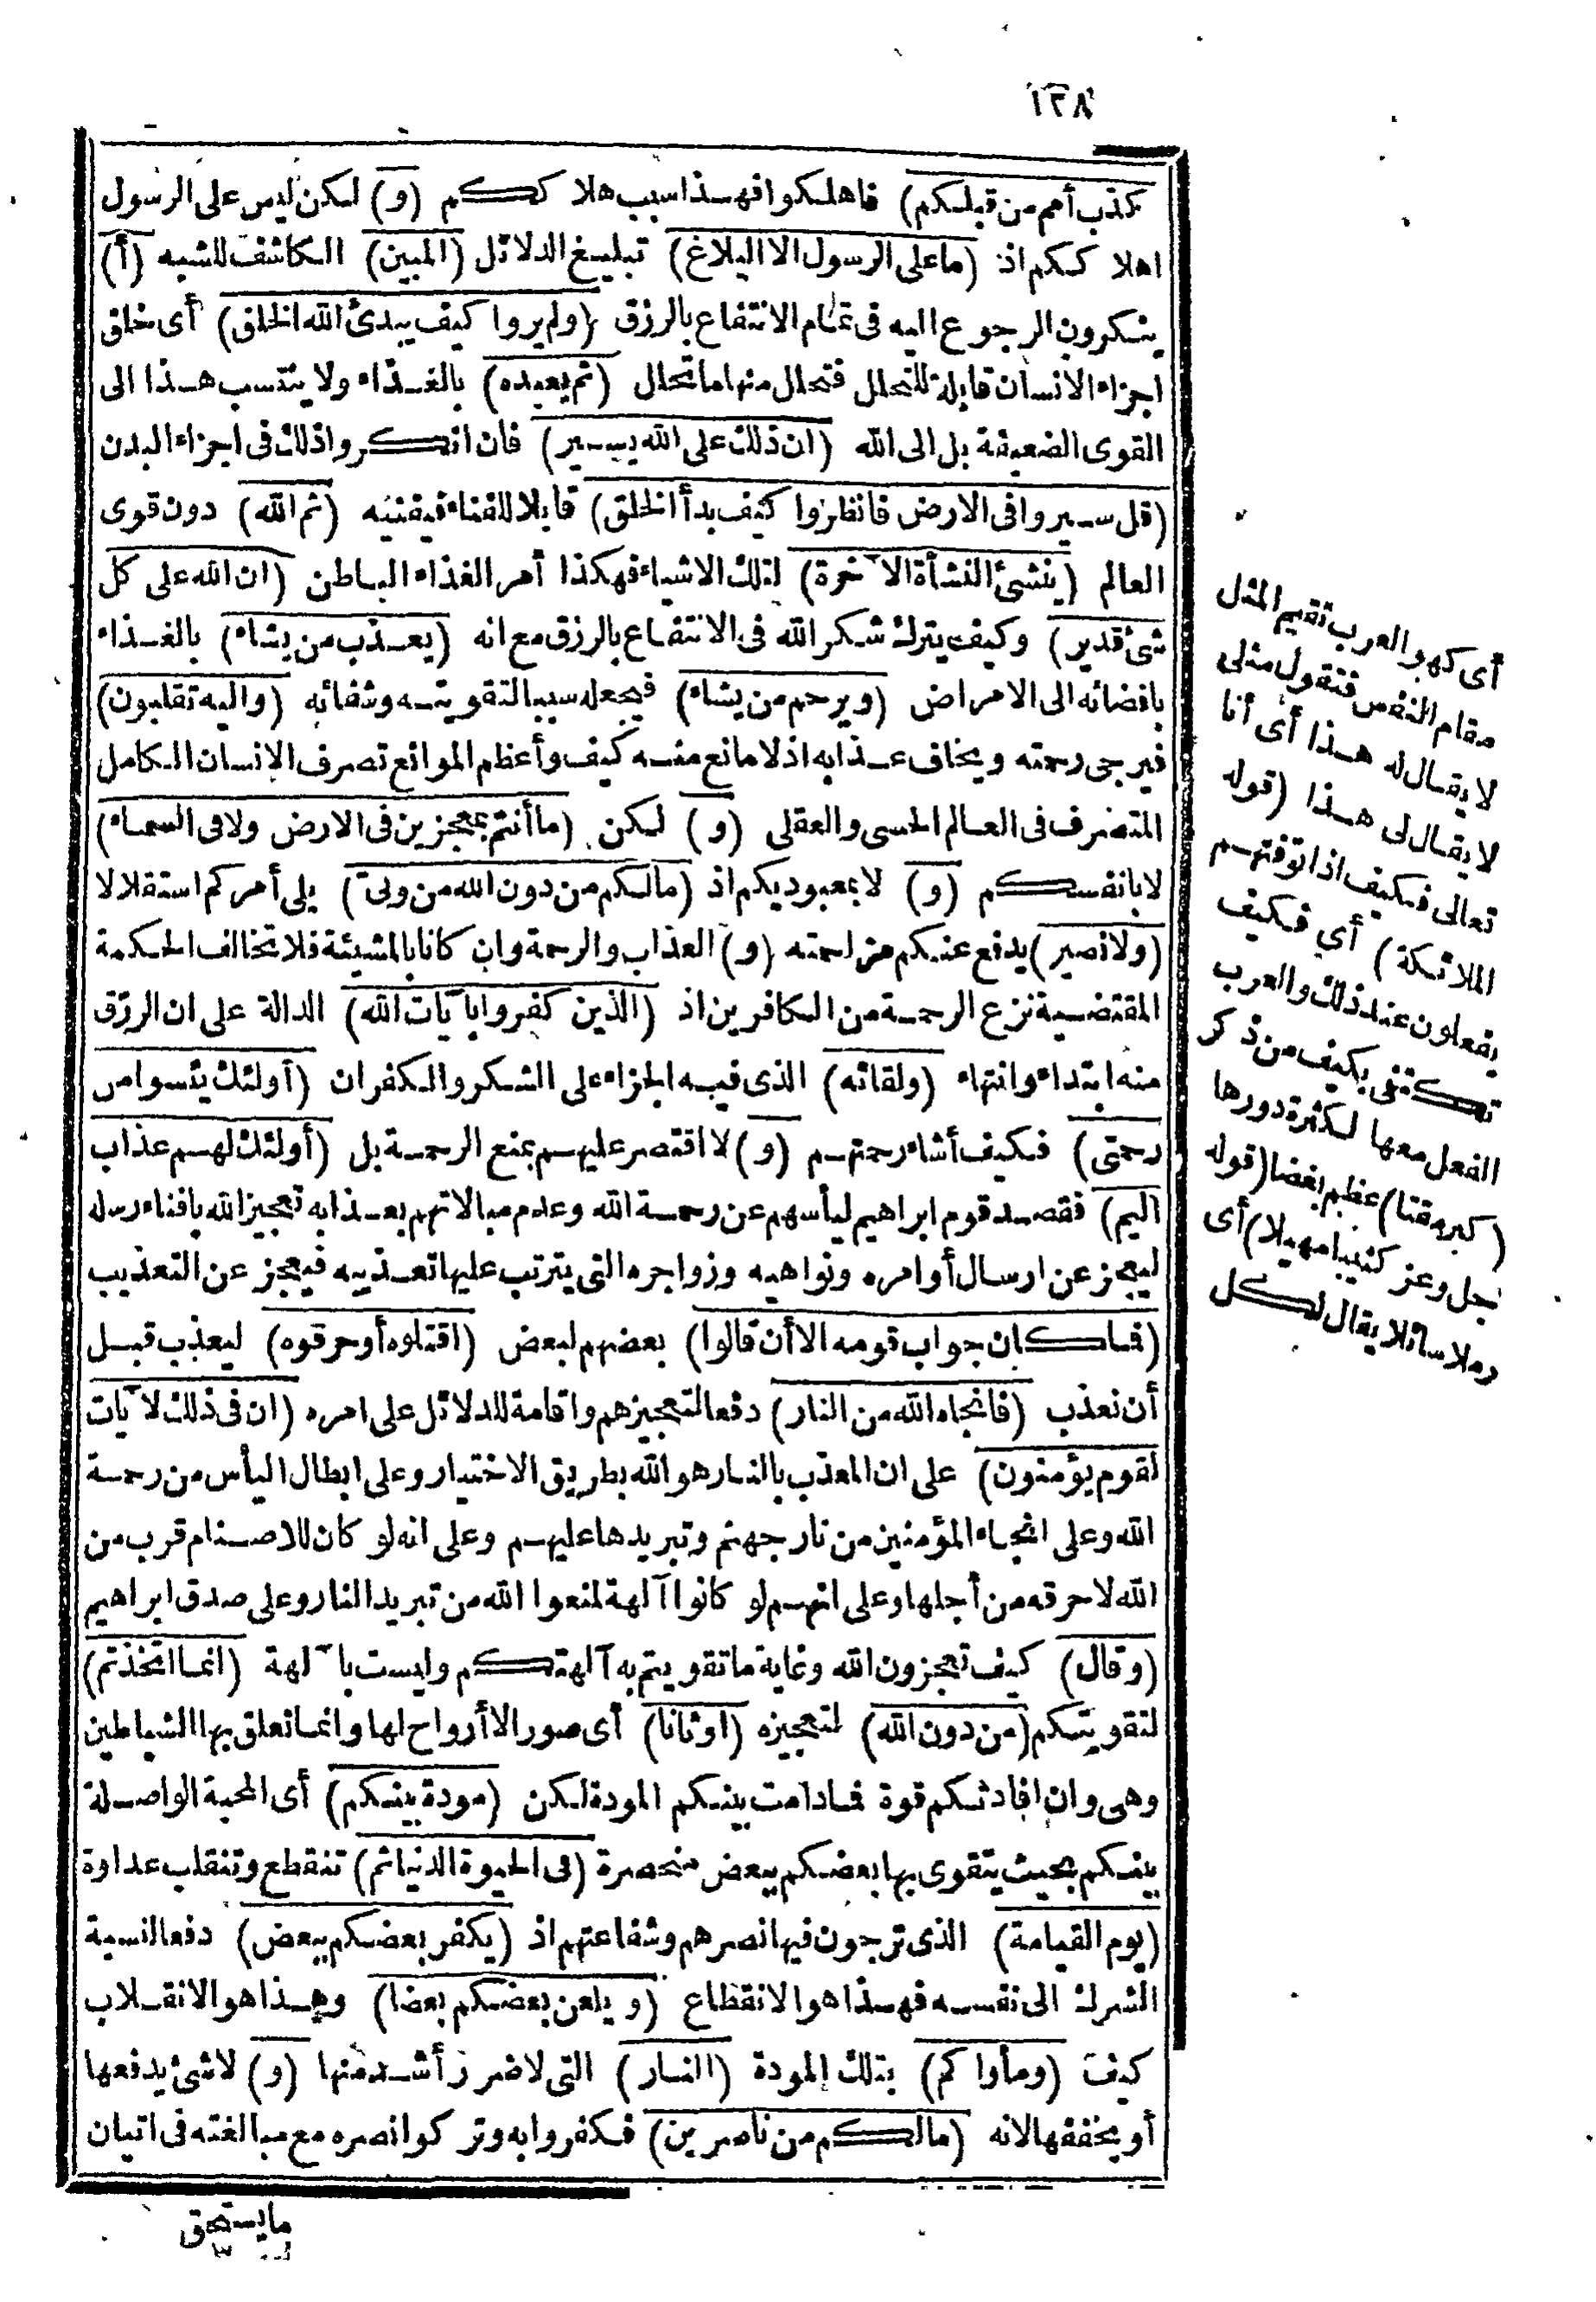 ١٣٨
كذب أمم من قبلكم) فاهلكوا فهذا سبب هلاككم (و) لكن ليس على الرسول
اهلاككم اذ (ما على الرسول الا البلاغ) تبليغ الدلائل (المبين) الكاشف للشبه (أ)
ينكرون الرجوع اليه فى تمام الانتفاع بالرزق (ولم يروا كيف يبدئ الله الخلق) أى يخلق
اجزاء الانسان قابلة للتحلل فتحلل منها ما تحلل (ثم يعيده) بالغذاء ولا ينتسب هذا الى
القوى الضعيفة بل الى الله (ان ذلك على الله يسير) فان انكروا ذلك فى اجزاء البدن
(قل سيروا فى الارض فانظروا كيف بدأ الخلق) قابلا للفناء فيفنيه (ثم الله) دون قوى
العالم (ينشئ النشأة الآخرة) لتلك الاشياء فهكذا أمر الغذاء الباطن (ان الله على كل
شئ قدير) وكيف يترك شكر الله فى الانتفاع بالرزق مع انه (يعذب من يشاء) بالغذاء
بافضائه الى الامراض (ويرحم من يشاء) فيجعله سببا لتقويته وشفائه (واليه تقلبون)
فيرجى رحمته ويخاف عذابه اذ لا مانع منه كيف وأعظم الموانع تصرف الانسان الكامل
المتصرف فى العالم الحسى والعقلى (و) لكن (ما أنتم بمعجزين فى الارض ولا فى السماء)
لا بانفسكم (و) لا بمعبوديكم اذ (ما لكم من دون الله من ولى) يلى أمركم استقلالا
(ولا نصير) يدفع عنكم مزاحمته (و) العذاب والرحمة وان كانا بالمشيئة فلا تخالف الحكمة
المقتضية نزع الرحمة من الكافرين اذ (الذين كفروا بآيات الله) الدالة على ان الرزق
منه ابتداء وانتهاء (ولقائه) الذى فيه الجزاء على الشكر والكفران (أولئك يئسوا من
رحمتى) فكيف أشاء رحمتهم (و) لا اقتصر عليهم بمنع الرحمة بل (أولئك لهم عذاب
أليم) فقصد قوم ابراهيم ليأسهم عن رحمة الله وعدم مبالاتهم بعذابه تعجيز الله بافناء رسله
ليعجز عن ارسال أوامره ونواهيه وزواجره التى يترتب عليها تعذيبه فيعجز عن التعذيب
(فما كان جواب قومه الا أن قالوا) بعضهم لبعض (اقتلوه أو حرقوه) ليعذب قبل
أن نعذب (فانجاه الله من النار) دفعا لتعجيزهم واقامة للدلائل على امره (ان فى ذلك لآيات
لقوم يؤمنون) على ان المعذب بالنار هو الله بطريق الاختيار وعلى ابطال اليأس من رحمة
الله وعلى انجاء المؤمنين من نار جهنم وتبريدها عليهم وعلى انه لو كان للاصنام قرب من
الله لاحرقه من أجلها وعلى انهم لو كانوا آلهة لمنعوا الله من تبريد النار وعلى صدق ابراهيم
(وقال) كيف تعجزون الله وغاية ما تقويتم به آلهتكم وليست بآلهة (انما اتخذتم)
لتقويتكم (من دون الله) لتعجيزه (اوثانا) أى صور الا أرواح لها وانما تعلق بها الشياطين
وهى وان افادتكم قوة فما دامت بينكم المودة لكن (مودة بينكم) أى المحبة الواصلة
بينكم بحيث يتقوى بها بعضكم ببعض منحصرة (فى الحيوة الدنيا ثم) تنقطع وتنقلب عداوة
(يوم القيامة) الذى ترجون فيها نصرهم وشفاعتهم اذ (يكفر بعضكم ببعض) دفعا لنسبة
الشرك الى نفسه فهذا هو الانقطاع (ويلعن بعضكم بعضا) وهذا هو الانقلاب
كيف (ومأواكم) بتلك المودة (النار) التى لا ضرر أشد منها (و) لا شئ يدفعها
أو يخففها لانه (ما لكم من ناصرين) فكفروا به وتركوا نصره مع مبالغته فى اتيان
ما يستحق
أى كهو والعرب تقيم المثل
مقام النفس فتقول مثلى
لا يقال له هذا أى أنا
لا يقال لى هذا (قوله
تعالى فكيف اذا توفتهم
الملائكة) أي فكيف
يفعلون عند ذلك والعرب
تكتفى بكيف من ذكر
الفعل معها لكثرة دورها
(كبر مقتا) عظم بغضا (قوله
جل وعز كثيبا مهيلا) أى
رملا سائلا يقال لكل